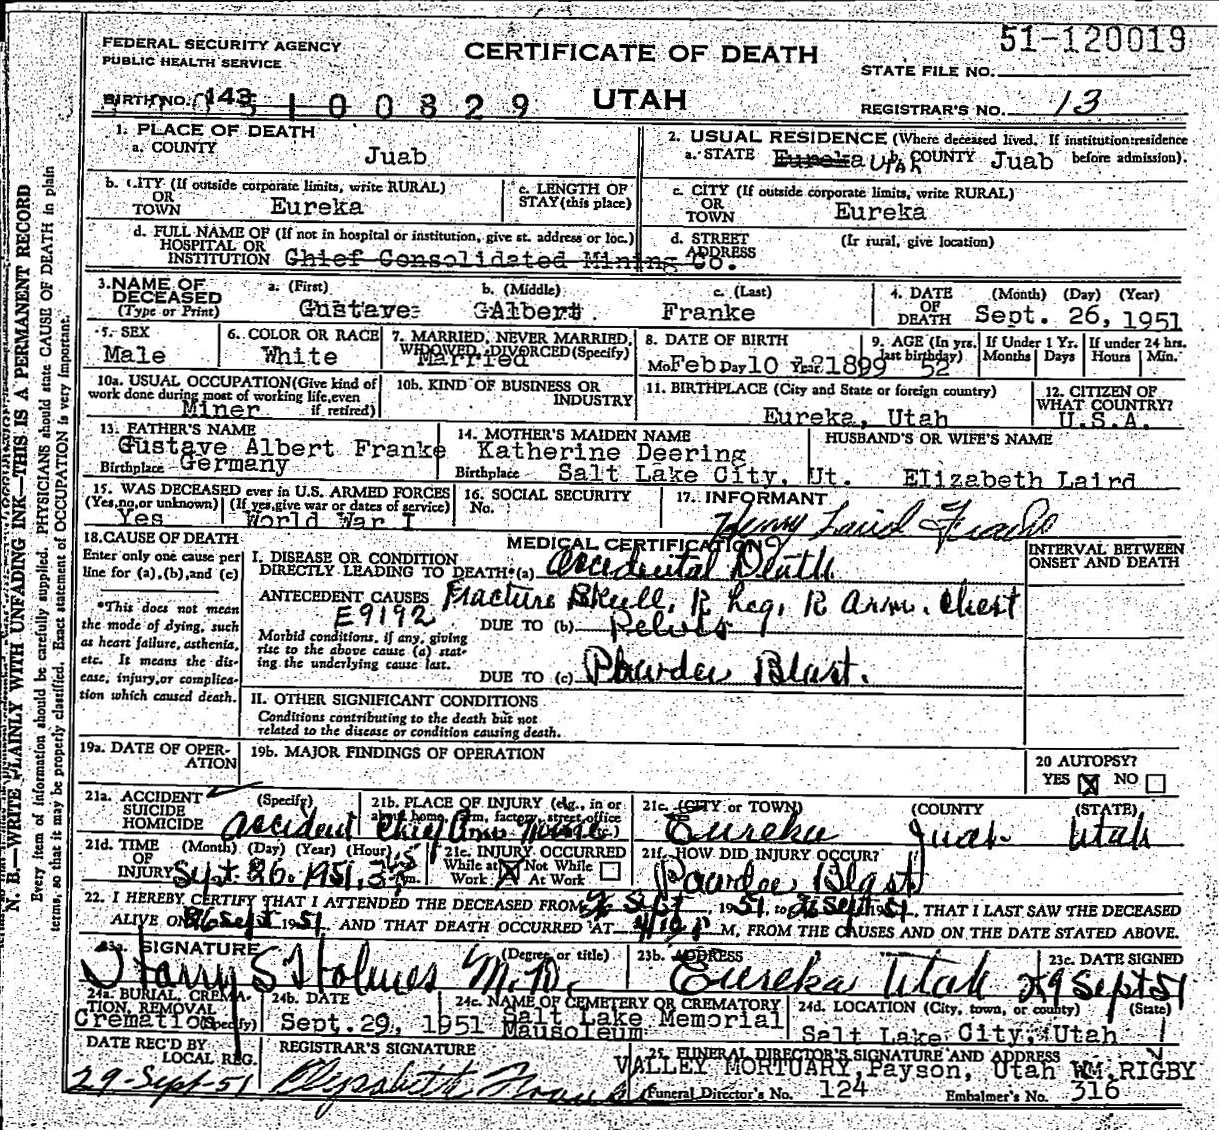 FEDERAL SECURITY AGENCY
PUBLIC HEALTH SERVICE
CERTIFICATE OF DEATH
UTAH
51-120019
STATE FILE NO.
BIRTH NO. 143
5100829
REGISTRAR'S NO. 13
N. B.—WRITE PLAINLY WITH UNFADING INK—THIS IS A PERMANENT RECORD
Every item of information should be carefully supplied. PHYSICIANS should state CAUSE OF DEATH in plain
terms, so that it may be properly classified. Exact statement of OCCUPATION is very important.
1. PLACE OF DEATH
a. COUNTY Juab
2. USUAL RESIDENCE (Where deceased lived. If institution: residence before admission).
a. STATE Eureka Utah b. COUNTY Juab
b. CITY (If outside corporate limits, write RURAL)
OR TOWN Eureka
c. LENGTH OF STAY (this place)
c. CITY (If outside corporate limits, write RURAL)
OR TOWN Eureka
d. FULL NAME OF (If not in hospital or institution, give st. address or loc.)
HOSPITAL OR INSTITUTION Chief Consolidated Mining Co.
d. STREET ADDRESS (If rural, give location)
3. NAME OF DECEASED (Type or Print)
a. (First) Gustave
b. (Middle) Albert
c. (Last) Franke
4. DATE OF DEATH (Month) (Day) (Year)
Sept. 26, 1951
5. SEX Male
6. COLOR OR RACE White
7. MARRIED, NEVER MARRIED, WIDOWED, DIVORCED (Specify) Married
8. DATE OF BIRTH
Mo Feb Day 10 Year 1899
9. AGE (In yrs. last birthday) 52
If Under 1 Yr. Months Days
If under 24 hrs. Hours Min.
10a. USUAL OCCUPATION (Give kind of work done during most of working life, even if retired) Miner
10b. KIND OF BUSINESS OR INDUSTRY
11. BIRTHPLACE (City and State or foreign country)
Eureka, Utah
12. CITIZEN OF WHAT COUNTRY? U.S.A.
13. FATHER'S NAME
Gustave Albert Franke
Birthplace Germany
14. MOTHER'S MAIDEN NAME
Katherine Deering
Birthplace Salt Lake City, Ut.
HUSBAND'S OR WIFE'S NAME
Elizabeth Laird
15. WAS DECEASED ever in U.S. ARMED FORCES
(Yes, no, or unknown) (If yes, give war or dates of service)
Yes World War I
16. SOCIAL SECURITY No.
17. INFORMANT
Henry Laird Franke
18. CAUSE OF DEATH
Enter only one cause per line for (a), (b), and (c)
*This does not mean the mode of dying, such as heart failure, asthenia, etc. It means the disease, injury, or complication which caused death.
MEDICAL CERTIFICATION
INTERVAL BETWEEN ONSET AND DEATH
I. DISEASE OR CONDITION DIRECTLY LEADING TO DEATH*(a) Accidental Death
ANTECEDENT CAUSES Fracture Skull, R Leg, R Arm. Chest
E9192 DUE TO (b) Pelvis
Morbid conditions, if any, giving rise to the above cause (a) stating the underlying cause last.
DUE TO (c) Powder Blast.
II. OTHER SIGNIFICANT CONDITIONS
Conditions contributing to the death but not related to the disease or condition causing death.
19a. DATE OF OPERATION
19b. MAJOR FINDINGS OF OPERATION
20 AUTOPSY?
YES X NO
21a. ACCIDENT SUICIDE HOMICIDE (Specify) Accident
21b. PLACE OF INJURY (e.g., in or about home, farm, factory, street, office etc.) Chief Mine
21c. (CITY or TOWN) (COUNTY) (STATE)
Eureka Juab Utah
21d. TIME OF INJURY (Month) (Day) (Year) (Hour)
Sept. 26. 1951,
21e. INJURY OCCURRED
While at Work X Not While At Work
21f. HOW DID INJURY OCCUR?
Powder Blast
22. I HEREBY CERTIFY THAT I ATTENDED THE DECEASED FROM 26 Sept 1951, to 26 Sept 1951, THAT I LAST SAW THE DECEASED
ALIVE ON 26 Sept 1951 AND THAT DEATH OCCURRED AT P M, FROM THE CAUSES AND ON THE DATE STATED ABOVE.
23a. SIGNATURE (Degree or title)
Harry S Holmes M.D.
23b. ADDRESS
Eureka Utah
23c. DATE SIGNED
29 Sept 51
24a. BURIAL, CREMATION, REMOVAL (Specify) Cremation
24b. DATE
Sept. 29, 1951
24c. NAME OF CEMETERY OR CREMATORY
Salt Lake Memorial
Mausoleum
24d. LOCATION (City, town, or county) (State)
Salt Lake City, Utah
DATE REC'D BY LOCAL REG.
29-Sept-51
REGISTRAR'S SIGNATURE
Elizabeth
25. FUNERAL DIRECTOR'S SIGNATURE AND ADDRESS
VALLEY MORTUARY, Payson, Utah WM. RIGBY
Funeral Director's No. 124 Embalmer's No. 316